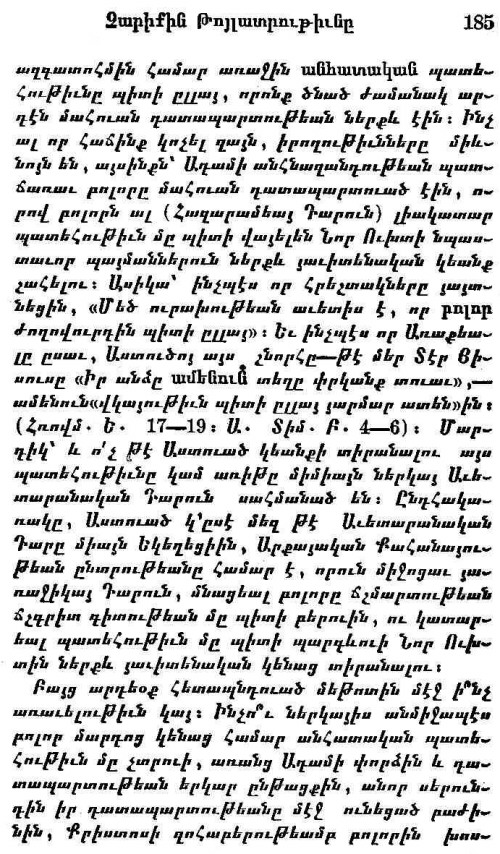 Չարիքին Թոյլատրութիւնը 185
ազգատոհմին համար առաջին անհատական պատե-
հութիւնը պիտի ըլլայ, որոնք ծնած ժամանակ ար-
դէն մահուան դատապարտութեան ներքև էին։ Ինչ
ալ որ հաճինք կոչել զայն, իրողութիւնները միև-
նոյն են, այսինքն՝ Ադամի անհնազանդութեան պատ-
ճառաւ բոլորը մահուան դատապարտուած էին, ո-
րով բոլորն ալ (Հազարամեայ Դարուն) լիակատար
պատեհութիւն մը պիտի վայելեն Նոր Ուխտի նպաս-
տաւոր պայմաններուն ներքև յաւիտենական կեանք
շահելու։ Ասիկա՝ ինչպէս որ հրեշտակները յայտ-
նեցին, «Մեծ ուրախութեան աւետիս է, որ բոլոր
ժողովուրդին պիտի ըլլայ»։ Եւ ինչպէս որ Առաքեա-
լը ըսաւ, Աստուծոյ այս շնորհը—թէ մեր Տէր Յի-
սուսը «Իր անձը ամենուն տեղը փրկանք տուաւ»,—
ամենուն«վկայութիւն պիտի ըլլայ յարմար ատեն»ին։
(Հռովմ. Ե. 17—19։ Ա. Տիմ. Բ. 4—6)։ Մար-
դիկ՝ և ո՛չ թէ Աստուած կեանքի տիրանալու այս
պատեհութիւնը կամ առիթը միմիայն ներկայ Աւե-
տարանական Դարուն սահմանած են։ Ընդհակա-
ռակը, Աստուած կ՚ըսէ մեզ թէ Աւետարանական
Դարը միայն Եկեղեցիին, Արքայական Քահանայու-
թեան ընտրութեանը համար է, որուն միջոցաւ յա-
ռաջիկայ Դարուն, մնացեալ բոլորը ճշմարտութեան
ճշգրիտ գիտութեան մը պիտի բերուին, ու կատար-
եալ պատեհութիւն մը պիտի պարգևուի Նոր Ուխ-
տին ներքև յաւիտենական կենաց տիրանալու։
Բայց արդեօք հետապնդուած մեթոտին մէջ ի՞նչ
առաւելութիւն կայ։ Ինչո՞ւ ներկայիս անմիջապէս
բոլոր մարդոց կենաց համար անհատական պատե-
հութիւն մը չտրուի, առանց Ադամի փորձին և դա-
տապարտութեան երկար ընթացքին, անոր սերուն-
դին իր դատապարտութեանը մէջ ունեցած բաժի-
նին, Քրիստոսի զոհաբերութեամբ բոլորին խոս-